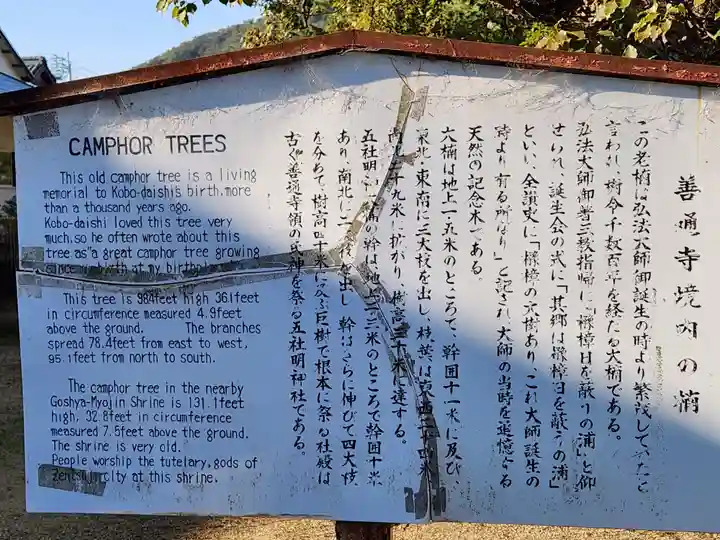 CAMPHOR TREES
This old camphor tree is a living
memorial to Kobo-daishi's birth, more
than a thousand years ago.
Kobo-daishi loved this tree very
much, so he often wrote about this
tree as "a great camphor tree growing
since my birth at my birthplace
This tree is 98.4feet high 36.1feet
in circumference measured 4.9feet
above the ground. The branches
spread 78.4feet from east to west,
95.1feet from north to south.
The camphor tree in the nearby
Goshya-Myojin Shrine is 131.1feet
high, 32.8feet in circumference
measured 7.5feet above the ground.
The shrine is very old.
People worship the tutelary, gods of
Zentsuji city at this shrine.
善通寺境内の楠
この老楠は弘法大師御誕生の時より繁茂していたと
言われ、樹令千数百年を経たる大楠である。
弘法大師御著三教指帰に「櫲樟日を蔽うの浦」と仰
せられ、誕生会の式に「其郷は櫲樟日を蔽うの浦」
といい、全讃史に「櫲樟の大樹あり、これ大師誕生の
時より有る所なり」と記され、大師の当時を追憶する
天然の記念木である。
大楠は地上一・五米のところで、幹囲十一米に及び、
東北、東南に三大枝を出し、枝葉は東西二十四米
南北二十九米に拡がり、樹高三十米に達する。
五社明神の楠の幹は地上二・三米のところで幹囲十米
あり、南北に二大枝を出し、幹はさらに伸びて四大枝
を分ちて、樹高四十米に及ぶ巨樹で根本に祭る社殿は
古く善通寺領の氏神を祭る五社明神社である。